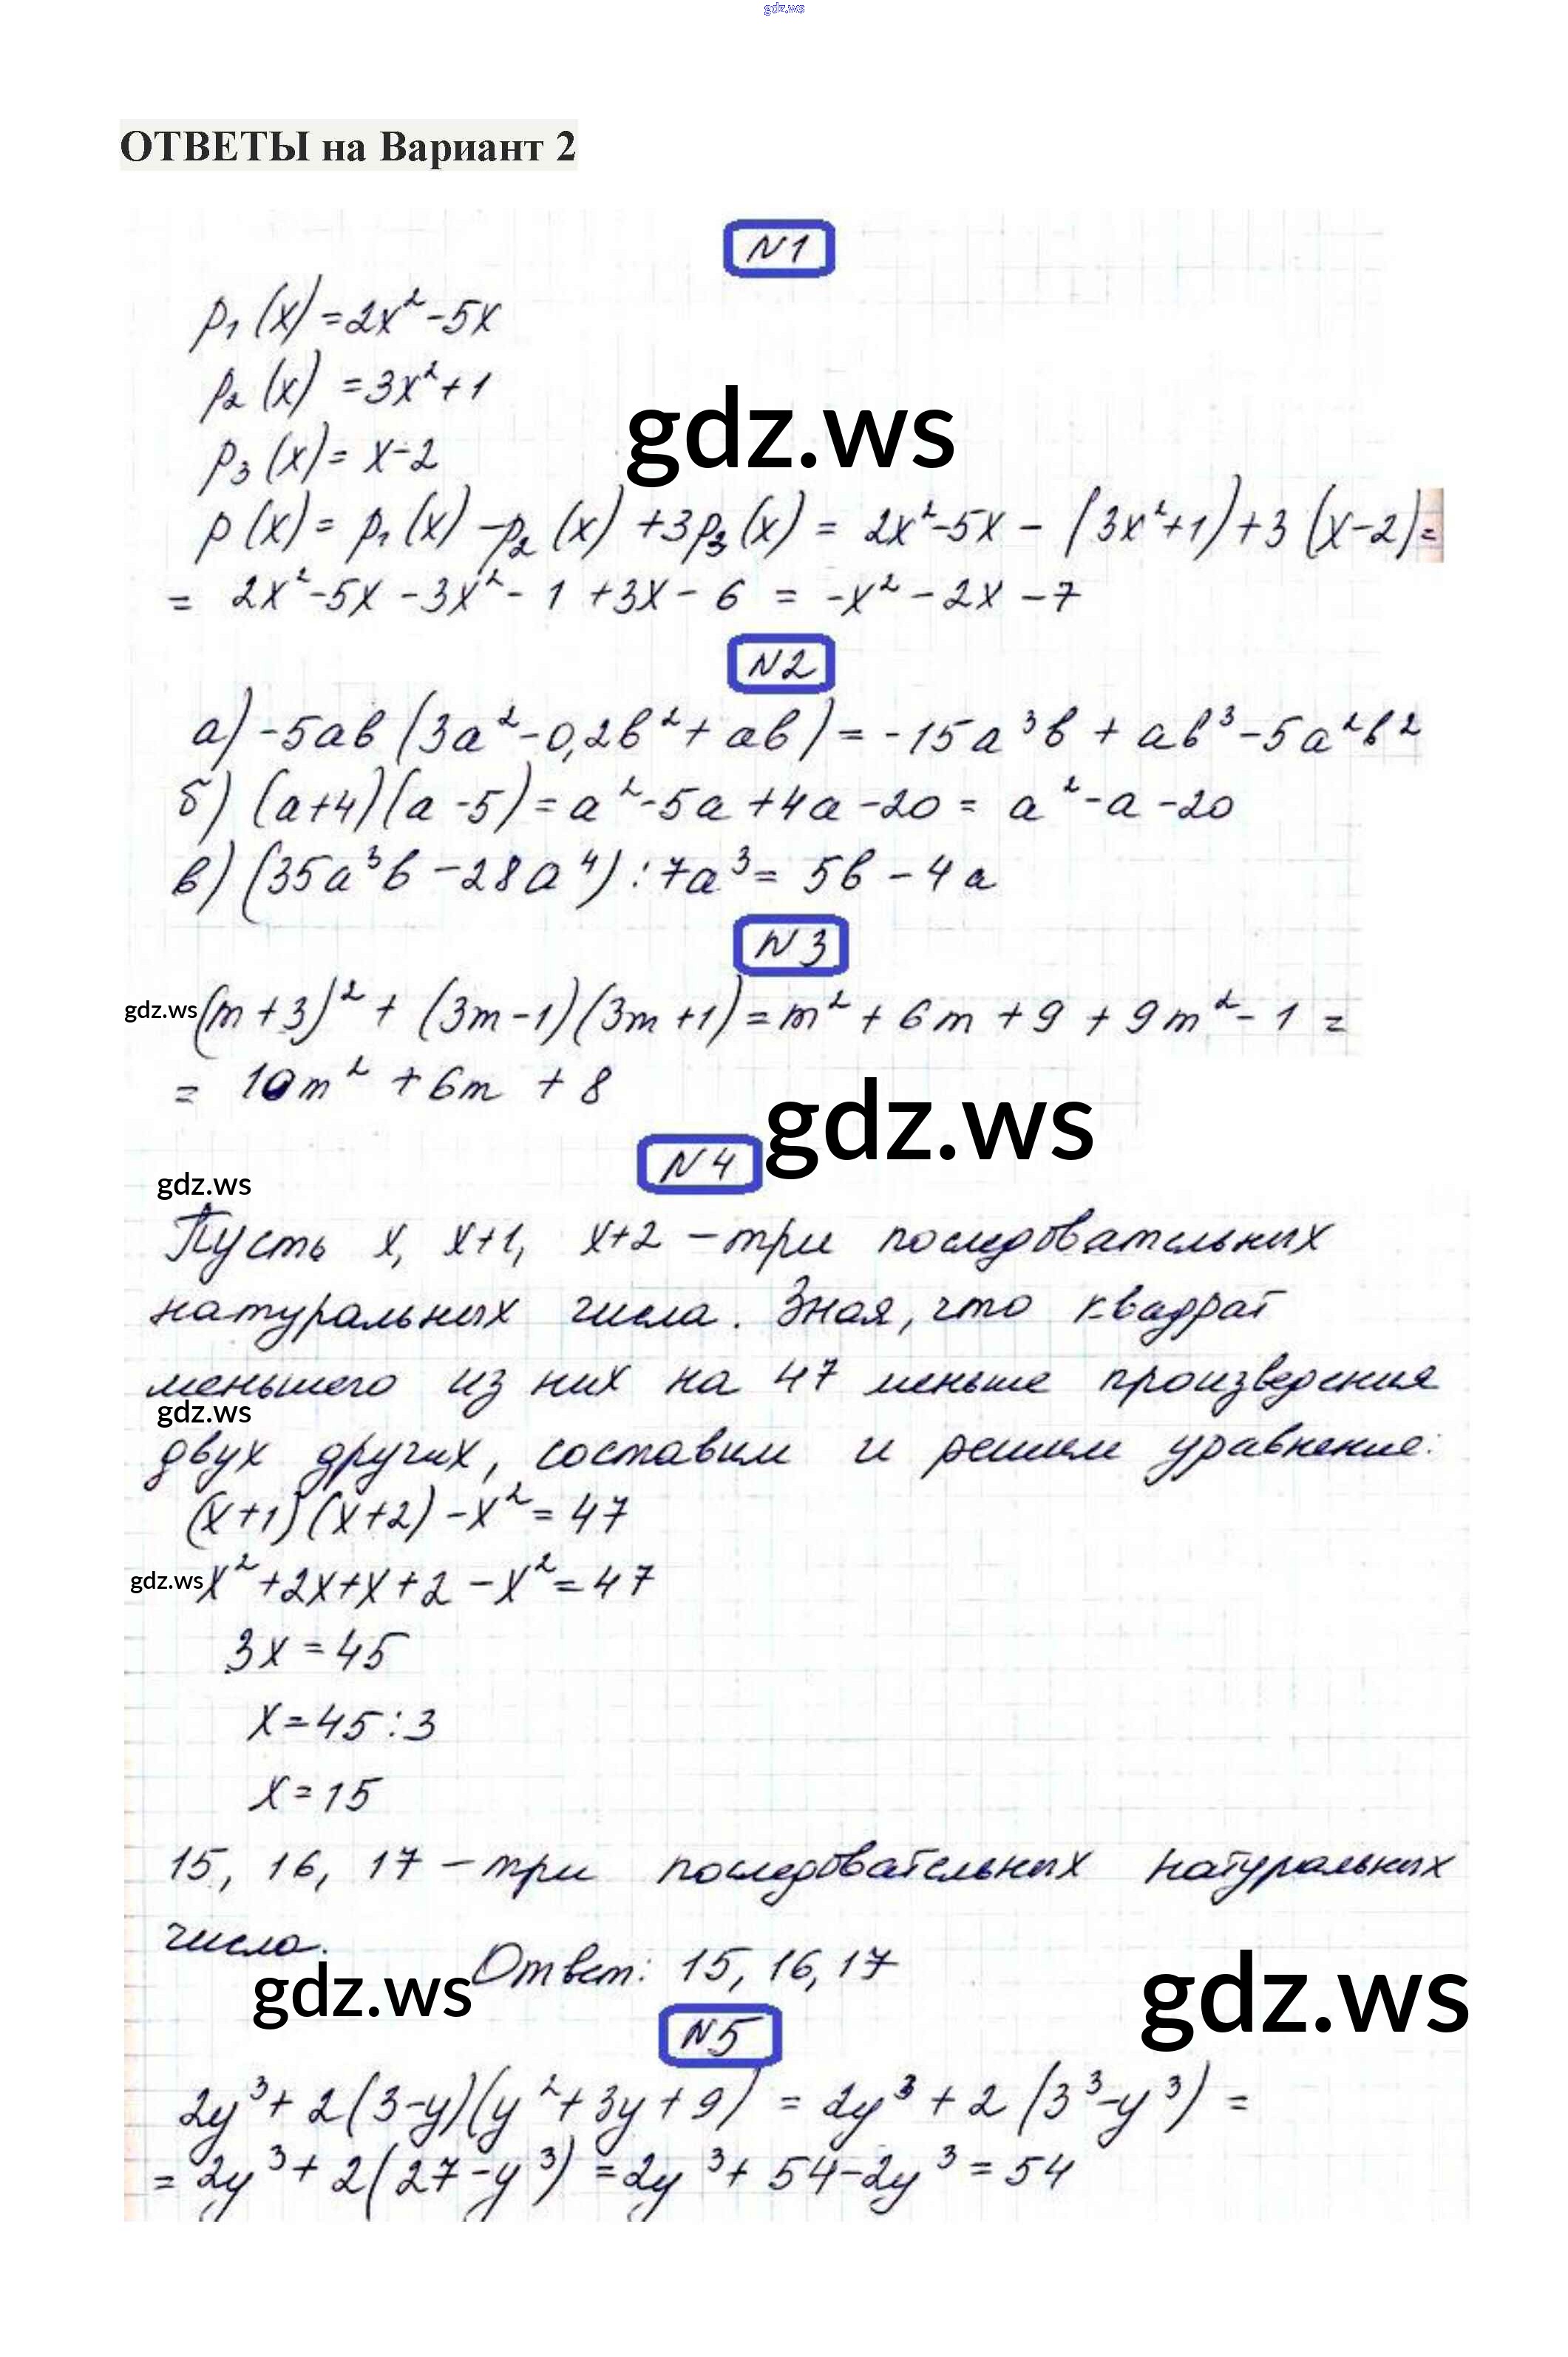 gdz.ws
ОТВЕТЫ на Вариант 2
N1
p₁(x)=2x²-5x
p₂(x)=3x²+1
gdz.ws
p₃(x)=x-2
p(x)=p₁(x)-p₂(x)+3p₃(x)=2x²-5x-(3x²+1)+3(x-2)=
=2x²-5x-3x²-1+3x-6=-x²-2x-7
N2
а)-5ab(3a²-0,2b²+ab)=-15a³b+ab³-5a²b²
б)(a+4)(a-5)=a²-5a+4a-20=a²-a-20
в)(35a³b-28a⁴):7a³=5b-4a
N3
gdz.ws (m+3)²+(3m-1)(3m+1)=m²+6m+9+9m²-1=
=10m²+6m+8
gdz.ws
N4
gdz.ws
Пусть x, x+1, x+2 – три последовательных
натуральных числа. Зная, что квадрат
меньшего из них на 47 меньше произведения
gdz.ws
двух других, составим и решим уравнение:
(x+1)(x+2)-x²=47
gdz.ws x²+2x+x+2-x²=47
3x=45
x=45:3
x=15
15, 16, 17 – три последовательных натуральных
числа.
Ответ: 15, 16, 17
gdz.ws gdz.ws
N5
2y³+2(3-y)(y²+3y+9)=2y³+2(3³-y³)=
=2y³+2(27-y³)=2y³+54-2y³=54